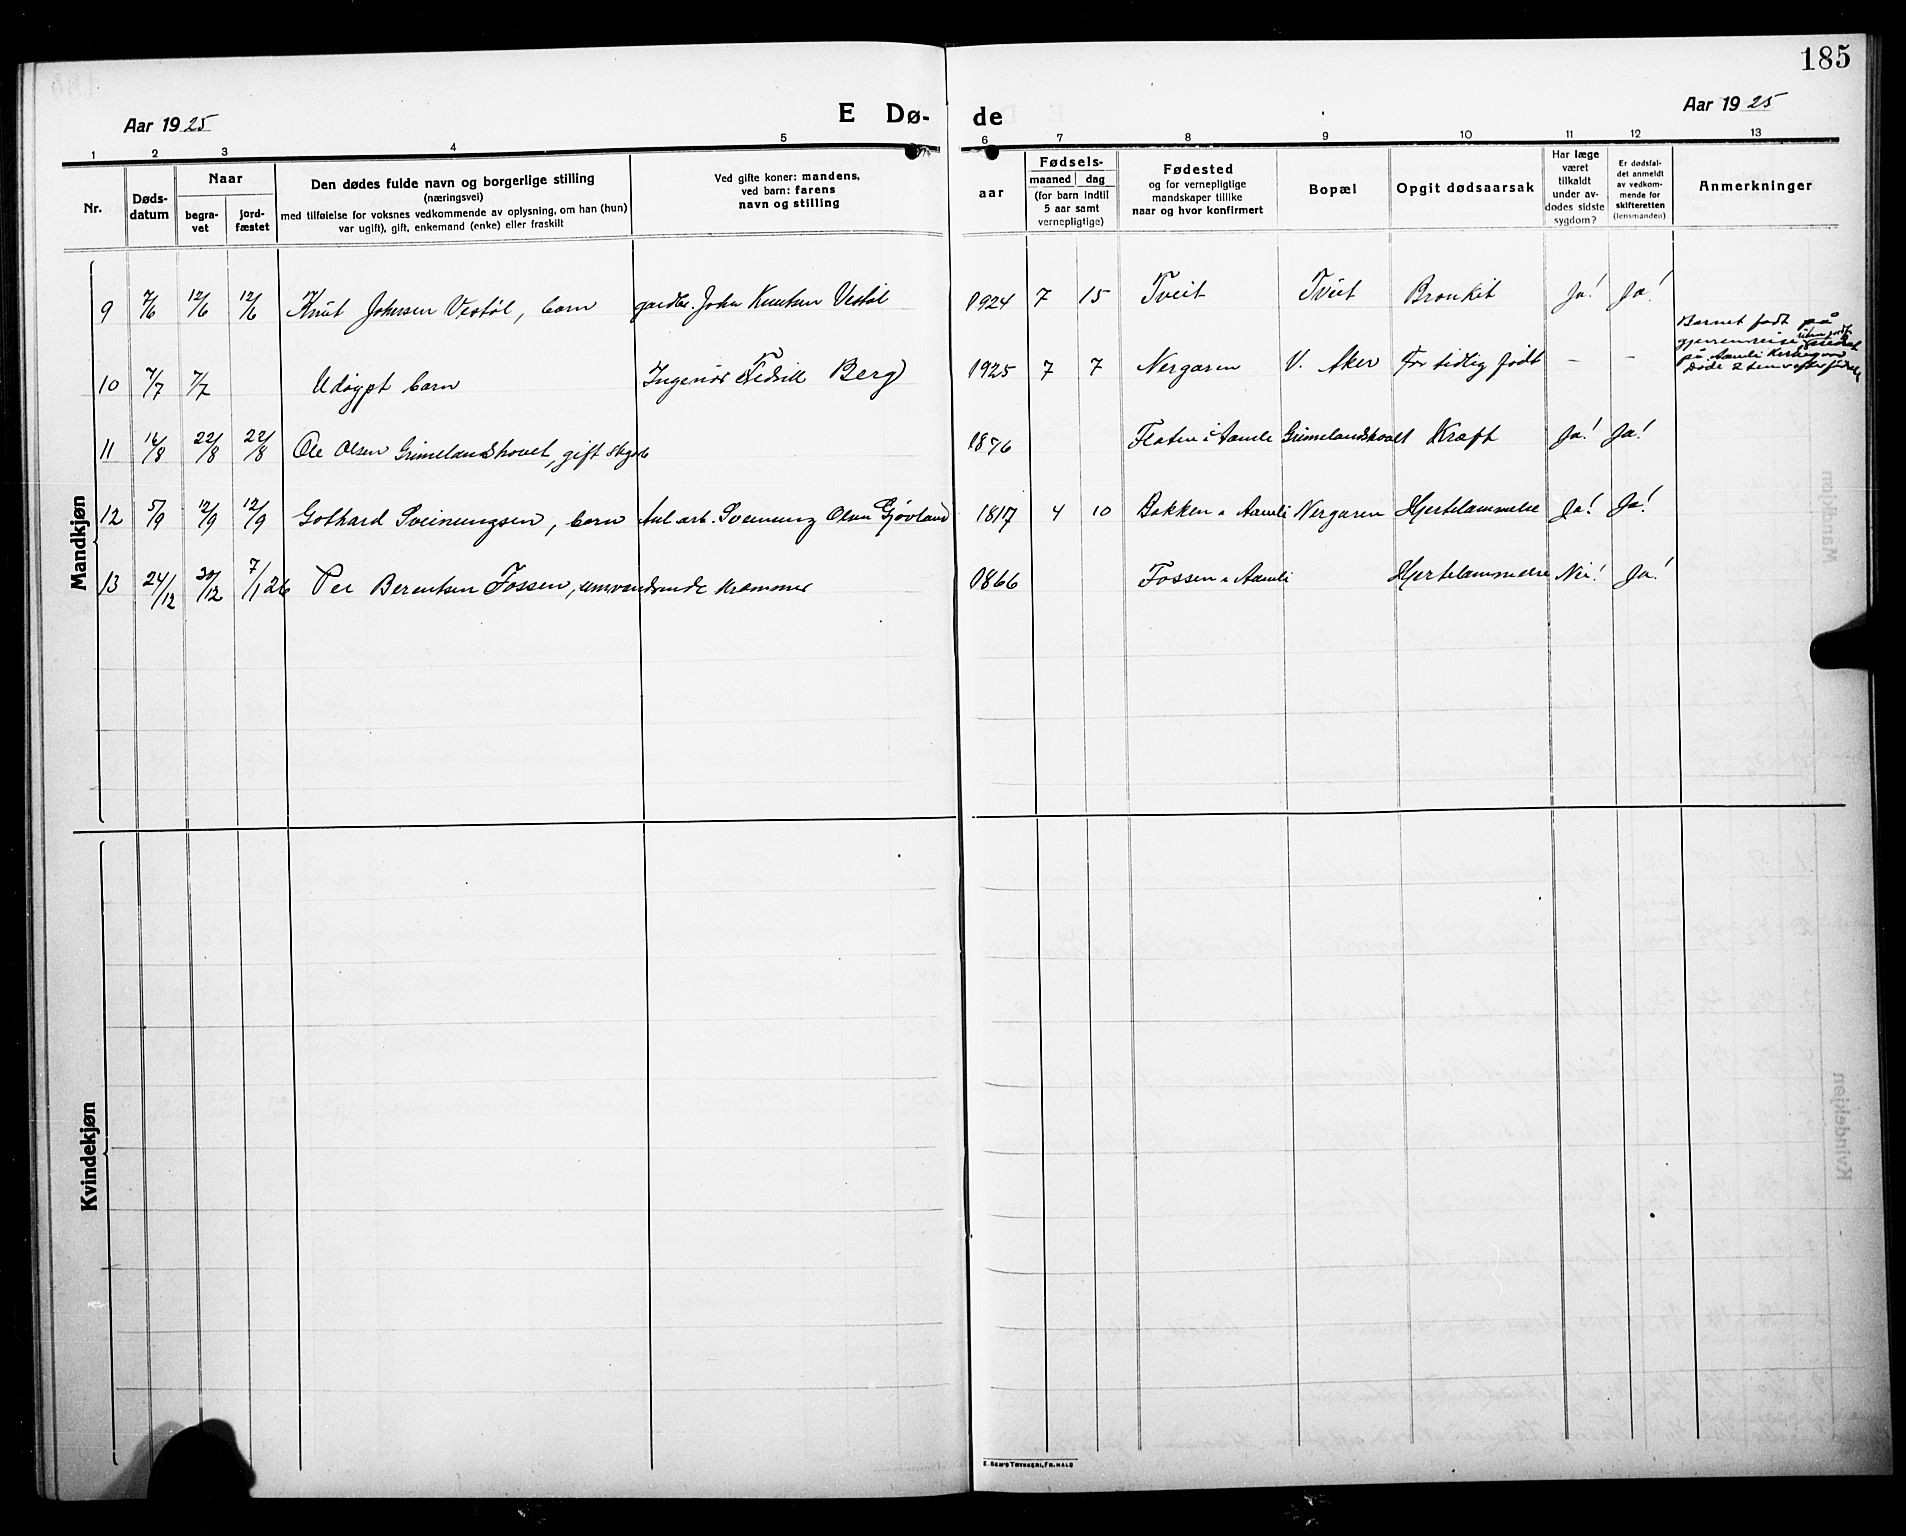 185
Aar 1925
E Dø-
de
Aar 1925
1 2 3 4 5 6 7 8 9 10 11 12 13
Nr.
Døds-
datum
Naar
begra-
vet
jord-
fæstet
Den dødes fulde navn og borgerlige stilling
(næringsvei)
med tilføielse for voksnes vedkommende av oplysning, om han (hun)
var ugift), gift, enkemand (enke) eller fraskilt
Ved gifte koner: mandens,
ved barn: farens
navn og stilling
aar
Fødsels-
maaned dag
(for barn indtil
5 aar samt
vernepligtige)
Fødested
og for vernepligtige
mandskaper tillike
naar og hvor konfirmert
Bopæl
Opgit dødsaarsak
Har læge
været
tilkaldt
under av-
dødes sidste
sygdom?
Er dødsfal-
det anmeldt
av vedkom-
mende for
skifteretten
(lensmanden)
Anmerkninger
Mandkjøn
9 7/6 12/6 12/6 Knut Johnsen Vestøl, barn gardbr. John Knutsen Vestøl 1924 7 15 Tveit Tveit Bronkit Ja! Ja!
10 7/7 7/7 Udøypt barn Ingeniør Fredrik Berg 1925 7 7 Nergaren V. Aker For tidlig født — —
Barnet født på
på Aamli Kirkegaard
Døde 2 timer efter fødsel
11 16/8 22/8 22/8 Ole Olsen Grimelandshovet, gift 1876 Flaten i Aamli Grimelandshovet Kræft Ja! Ja!
12 5/9 12/9 12/9 Gothard Sveinungsen, barn Anl. arb. Sveinung Olsen Gjøvland 1817 4 10 Bakken i Aamli Nergaren Hjertelammelse Ja! Ja!
13 24/12 30/12 7/1 26 Per Berentsen Fossen, omvandrende kræmmer 1866 Fossen i Aamli Hjertelammelse Nei! Ja!
Kvindekjøn
E. SEM'S TRYKKERI, FR.HALD